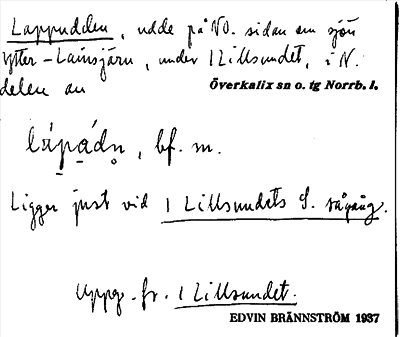 Lappudden, udde på VO. sidan om sjön
Ytter-Lainsjärn, under 1 Lillsundet, i N.
delen av Överkalix sn o. tg Norrb. l.
lápádn, bf. m.
Ligger just vid 1 Lillsundets S. rågång.
Uppg. fr. 1 Lillsundet.
EDVIN BRÄNNSTRÖM 1937